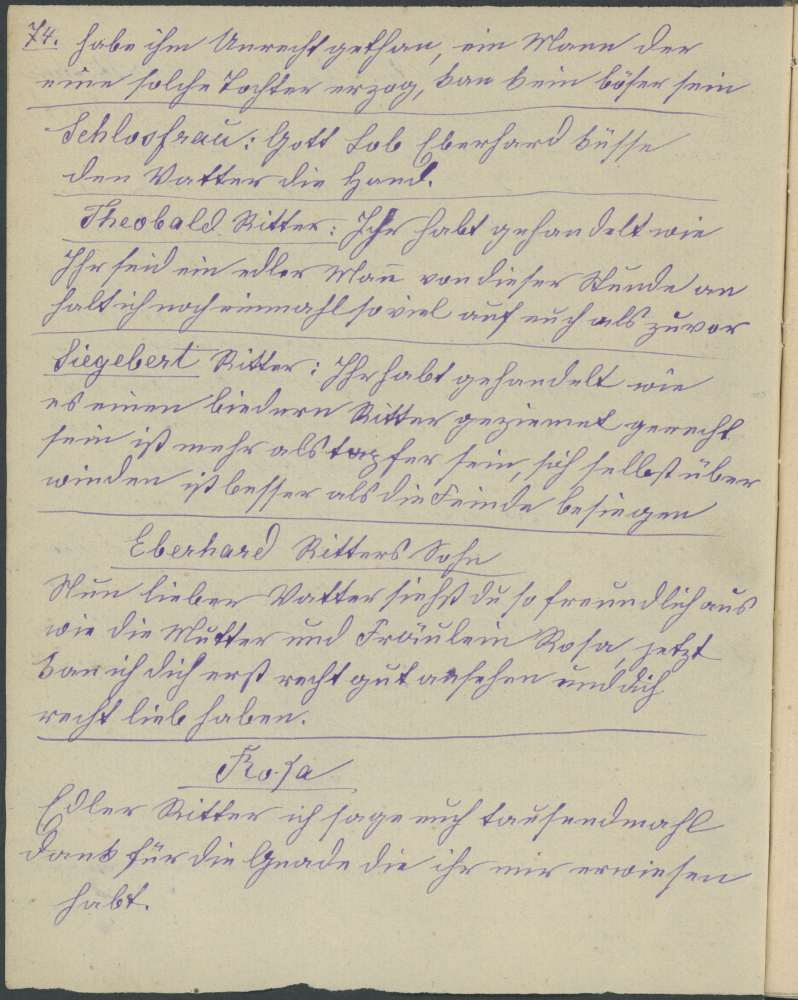 74. habe ihm Unrecht gethan, ein Mann der
eine solche Tochter erzog, kan kein böser sein
Schlosfrau: Gott Lob Eberhard küsse
den Vatter die Hand.
Theobald Ritter: Ihr habt gehandelt wie
Ihr seid ein edler Man̄ von dieser Stunde an
halt ich noch einmahl so viel auf euch als zuvor
Siegebert Ritter: Ihr habt gehandelt wie
es einen biedern Ritter geziemet gerecht
sein ist mehr als tapfer sein, sich selbst über
winden ist besser als die Feinde besiegen
Eberhard Ritters Sohn
Nun lieber Vatter siehst du so freundlich aus
wie die Mutter und Fräulein Rosa, jetzt
kan ich dich erst recht gut ansehen und dich
recht lieb haben.
Rosa
Edler Ritter ich sage euch tausendmahl
Dank für die Gnade die ihr mir erwiesen
habt.